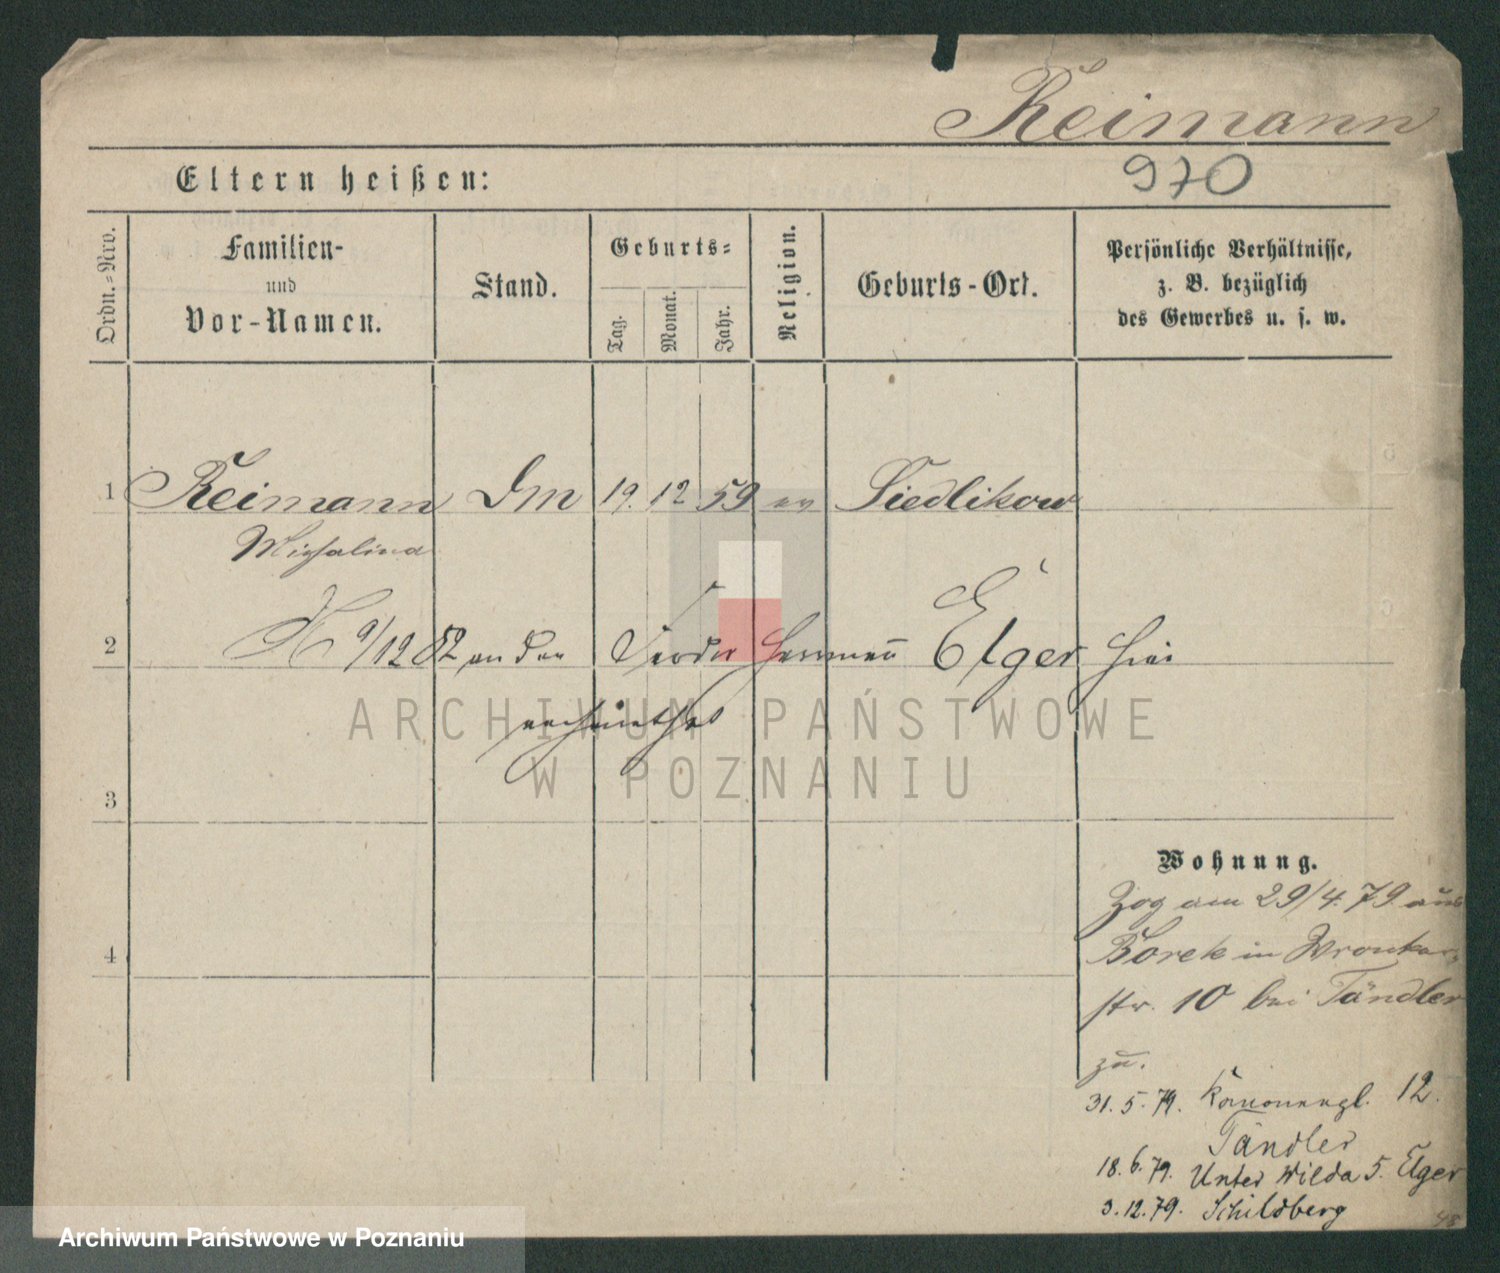 Reimann
970
Eltern heißen:
Ordn.-Nro.
Familien-
und
Vor-Namen.
Stand.
Geburts-
Tag.
Monat.
Jahr.
Religion.
Geburts-Ort.
Persönliche Verhältnisse,
z. B. bezüglich
des Gewerbes u. s. w.
1 Reimann Dm 19. 12 59 ev Siedlikow
Michalina
2 9/12 82 an den Herman̅ Elger hier
verheirathet
ARCHIWUM PAŃSTWOWE
W POZNANIU
3
Wohnung.
Zog am 29/4. 79. aus
4 Borek in Wronker
str. 10 bei Tändler
zu.
31. 5. 79. 12.
Tändler
18. 6. 79. Unter Wilda 5. Elger
3. 12. 79. Schildberg
48
Archiwum Państwowe w Poznaniu